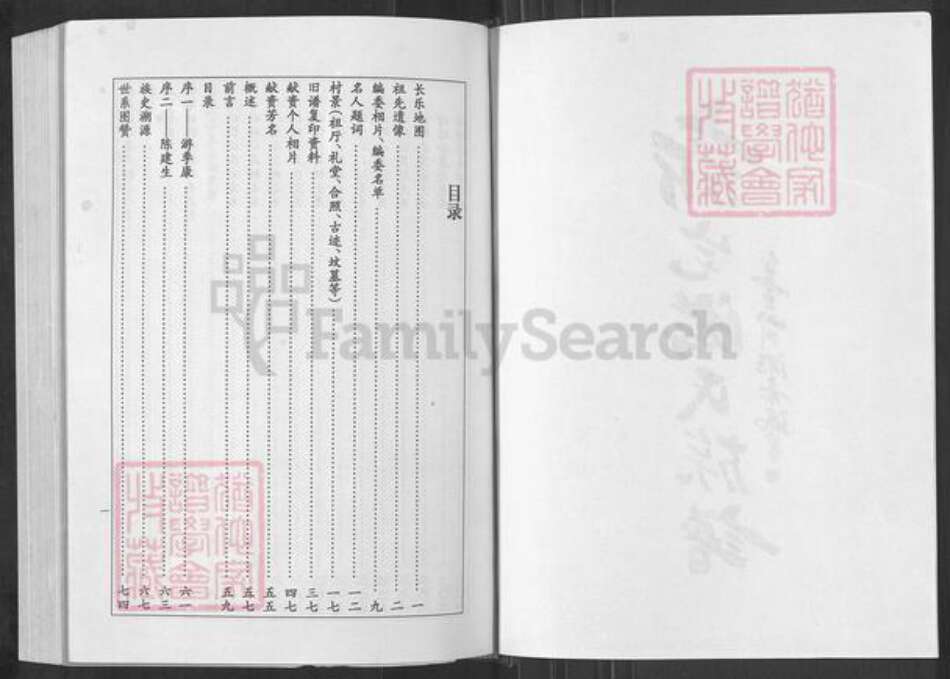 目录
长乐地图 一
祖先遗像 二
编委相片、编委名单 九
名人题词 一二
村景(祖厅、礼堂、合照、古迹、坟墓等) 一七
旧谱复印资料 三七
献资个人相片 四七
献资芳名 五五
概述 五七
前言 五九
目录
序一——游季康 六一
序二——陈建生 六三
族史溯源 六七
世系图赞 七四
一
譜學會
收藏
FamilySearch